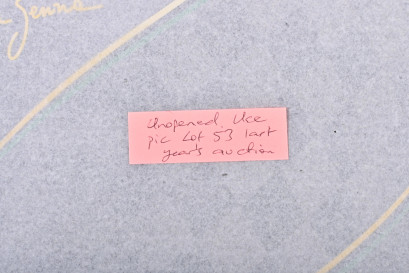 Senna
Unopened. Use
pic Lot 53 last
years auction